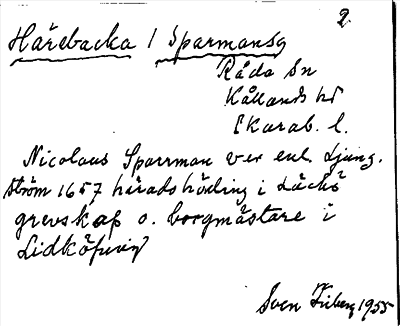 2.
Härebacka / Sparmansg
Råda Sn
Kållands hd
Skarab. l.
Nicolaus Sparrman var enl. Ljung-
ström 1657 häradshövding i Läckö
grevskap o. borgmästare i
Lidköping
Sven 1955